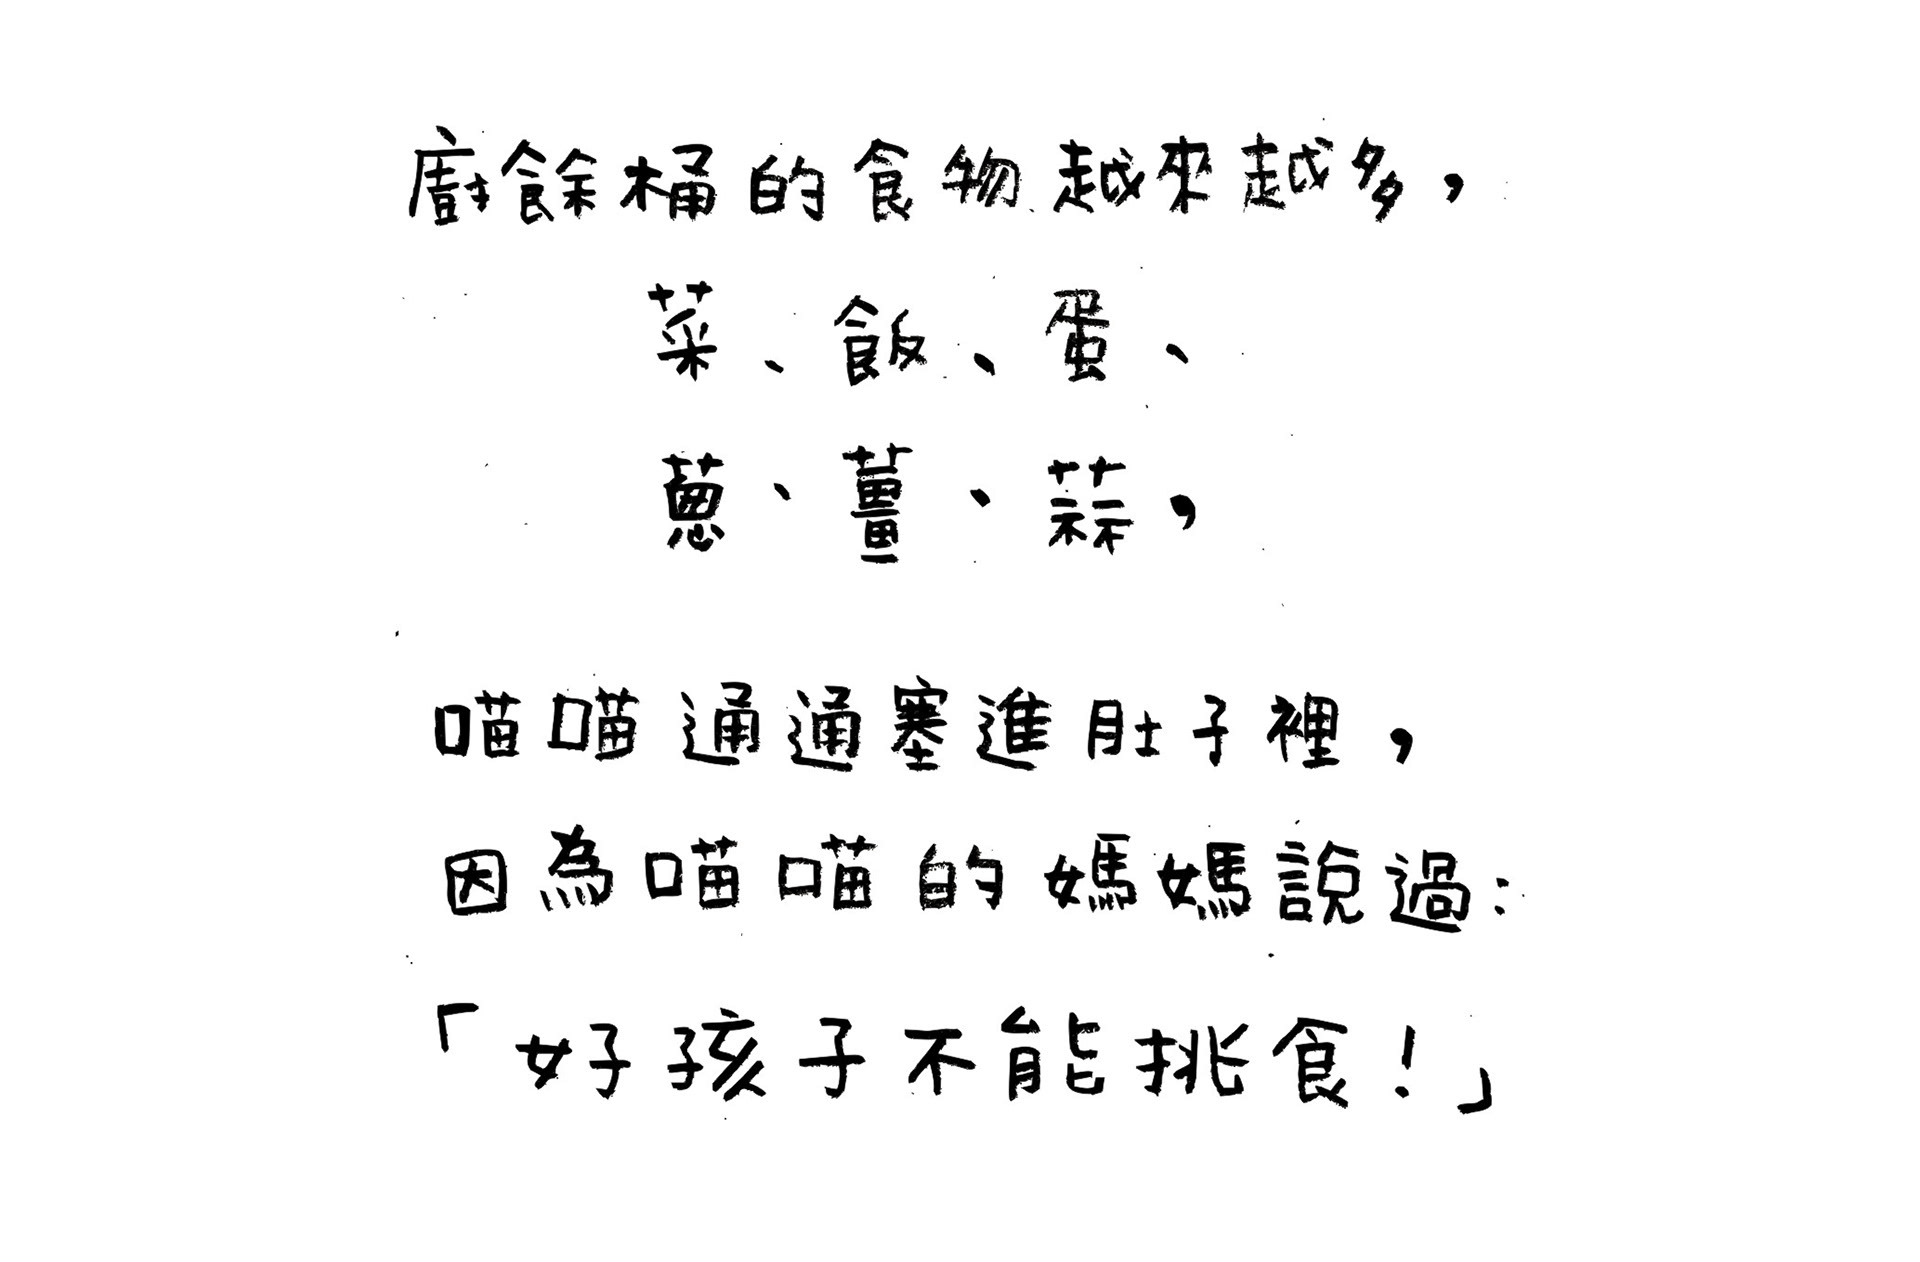 廚餘桶的食物越來越多，
菜、飯、蛋、
蔥、薑、蒜，
喵喵通通塞進肚子裡，
因為喵喵的媽媽說過：
「好孩子不能挑食！」